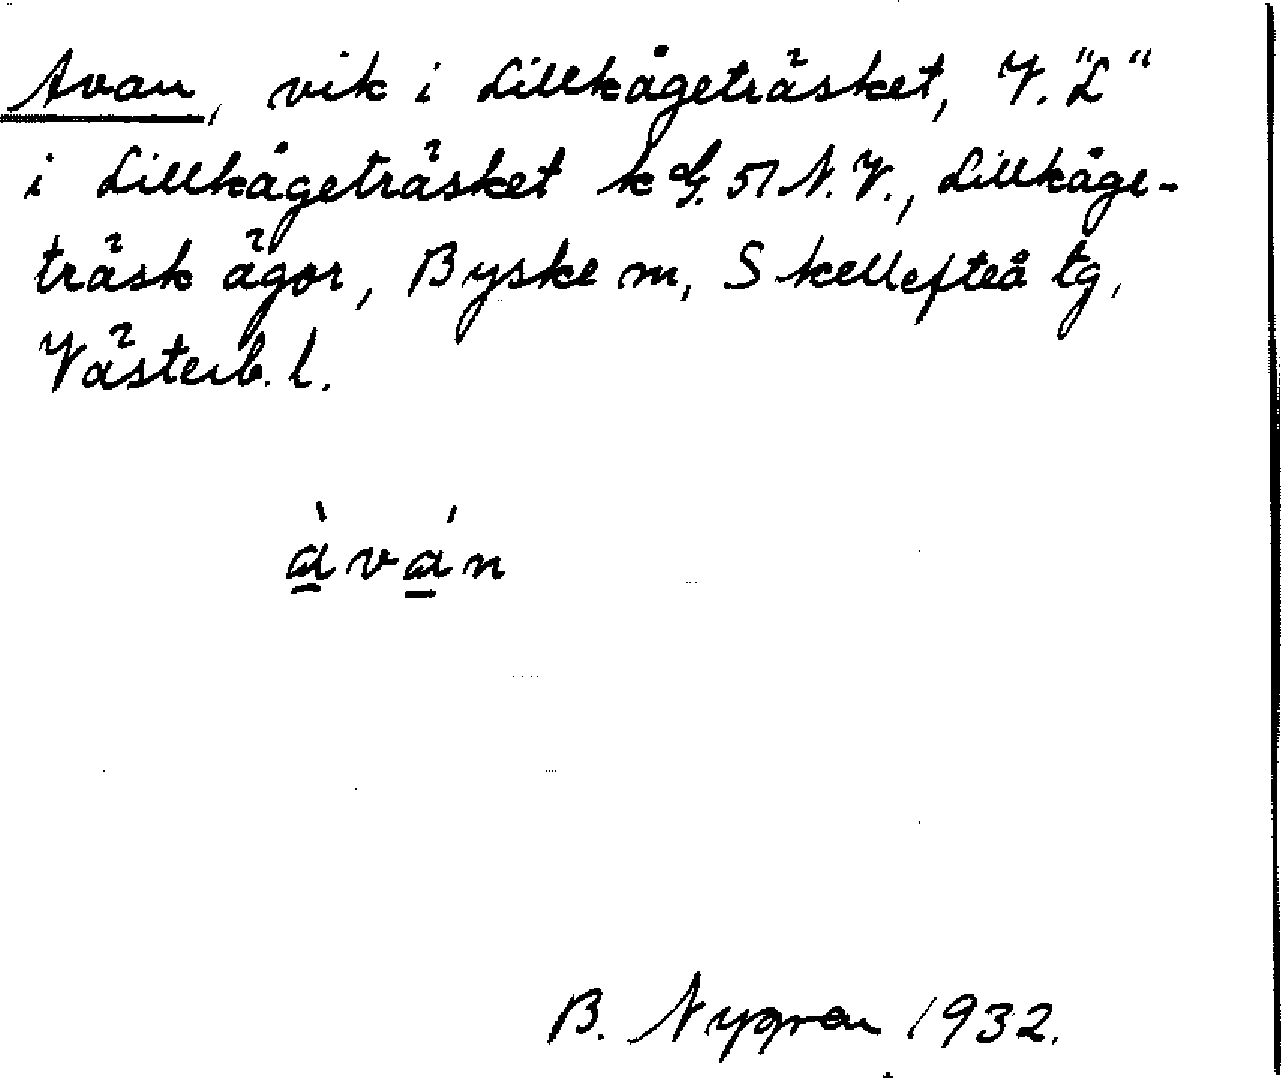 Avan, vik i Lillkågeträsket, V. "L"
i Lillkågeträsket k G. 51 N.V., Lillkåge-
träsk ägor, Byske m, Skellefteå tg,
Västerb. l.
àván
B. Nygren 1932.